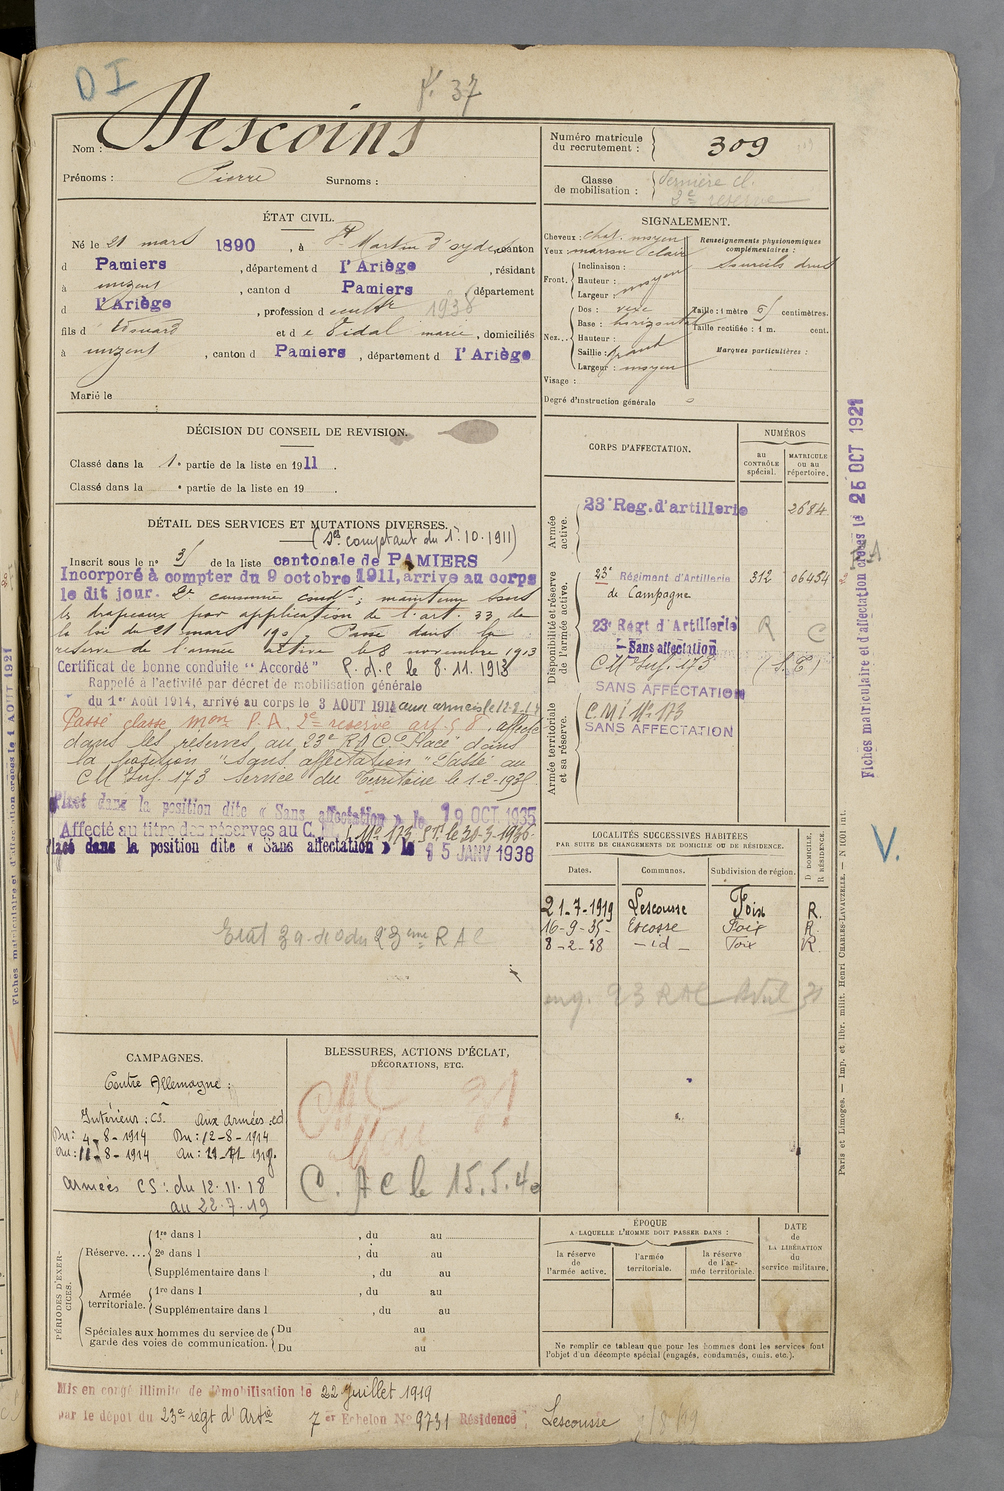 D I
f. 37
Nom : Descoins
Prénoms : Pierre Surnoms :
Numéro matricule du recrutement : 309
Classe de mobilisation : Dernière cl. 2e réserve
ÉTAT CIVIL.
Né le 21 mars 1890, à St Martin d'oydes, canton
d Pamiers, département d l'Ariège, résidant
à unzent, canton d Pamiers, département
d l'Ariège, profession d cultr 1938
fils d et d e Vidal marie, domiciliés
à unzent, canton d Pamiers, département d l'Ariège
Marié le
SIGNALEMENT.
Cheveux : chat. moyen
Yeux : marron clair
Front. Inclinaison :
Hauteur : moyen
Largeur :
Nez... Dos : vexe
Base : horizontal
Hauteur :
Saillie : grand
Largeur : moyen
Visage :
Degré d'instruction générale
Renseignements physionomiques complémentaires :
Sourcils droits
Taille : 1 mètre 61 centimètres.
Taille rectifiée : 1 m. cent.
Marques particulières :
DÉCISION DU CONSEIL DE REVISION.
Classé dans la 1e partie de la liste en 1911.
Classé dans la e partie de la liste en 19 .
DÉTAIL DES SERVICES ET MUTATIONS DIVERSES.
(Sce comptant du 1er.10.1911)
Inscrit sous le no 31 de la liste cantonale de PAMIERS
Incorporé à compter du 9 octobre 1911, arrive au corps
le dit jour. 2e canonnier condr; maintenu sous
les drapeaux par application de l'art. 33 de
la loi du 21 mars 1905. Passé dans la
réserve de l'armée active le 8 novembre 1913
Certificat de bonne conduite "Accordé" R.d.c le 8.11.1913
Rappelé à l'activité par décret de mobilisation générale
du 1er Août 1914, arrivé au corps le 3 AOUT 1914 aux armées le 12-8-14
Passé classe mon P.A. 2e réserve art. 58. affecté
dans les réserves, au 23e R A C. Placé dans
la position "Sans affectation" Classé au
C M Inf. 173 Service du Territoire le 1-2-1935
Placé dans la position dite « Sans affectation » le 19 OCT. 1935
Affecté au titre des réserves au C. M. I. No 173 S.T. le 30-3-1936
Placé dans la position dite « Sans affectation » le 15 JANV 1938
Etat 39-40 du 23eme R A C
CORPS D'AFFECTATION.
NUMÉROS
au CONTRÔLE spécial.
MATRICULE ou au répertoire.
Armée active.
23e Reg. d'artillerie 2684
Disponibilité et réserve de l'armée active.
23e Régiment d'Artillerie 312 06454
de Campagne
23e Régt d'Artillerie R C
Sans affectation
C M Inf. 173 (S.T.)
SANS AFFECTATION
Armée territoriale et sa réserve.
C.M I No 173
SANS AFFECTATION
LOCALITÉS SUCCESSIVES HABITÉES
PAR SUITE DE CHANGEMENTS DE DOMICILE OU DE RÉSIDENCE.
Dates. Communes. Subdivision de région. D DOMICILE, R RÉSIDENCE.
21-7-1919 Lescousse Foix R.
16-9-35 Escosse Foix R.
8-2-38 - id - Foix R.
23 RAC Avril 31
CAMPAGNES.
Contre Allemagne :
Intérieur : CS. Aux armées : cd
Du : 4-8-1914 Du : 12-8-1914
au : 11-8-1914 au : 11-11-1918
armées CS : du 12.11.18
au 22.7.19
BLESSURES, ACTIONS D'ÉCLAT,
DÉCORATIONS, ETC.
31
C. A C le 15.5.40
PÉRIODES D'EXERCICES.
Réserve.... 1re dans l , du au
2e dans l , du au
Supplémentaire dans l , du au
Armée territoriale. 1re dans l , du au
Supplémentaire dans l , du au
Spéciales aux hommes du service de garde des voies de communication. Du au
Du au
ÉPOQUE
A LAQUELLE L'HOMME DOIT PASSER DANS :
la réserve de l'armée active.
l'armée territoriale.
la réserve de l'armée territoriale.
DATE de LA LIBÉRATION du service militaire.
Ne remplir ce tableau que pour les hommes dont les services font
l'objet d'un décompte spécial (engagés, condamnés, omis. etc.).
Mis en congé illimité de démobilisation le 22 Juillet 1919
par le dépôt du 23e régt d'Artie 7er Echelon No 9731 Résidence : Lescousse
Fiches matriculaire et d'affectation créées le 26 OCT 1921
V.
Paris et Limoges. — Imp. et libr. milit. Henri CHARLES-LAVAUZELLE. — N 1031 int.
Fiches matriculaire et d'affectation créées le 1 AOUT 1921